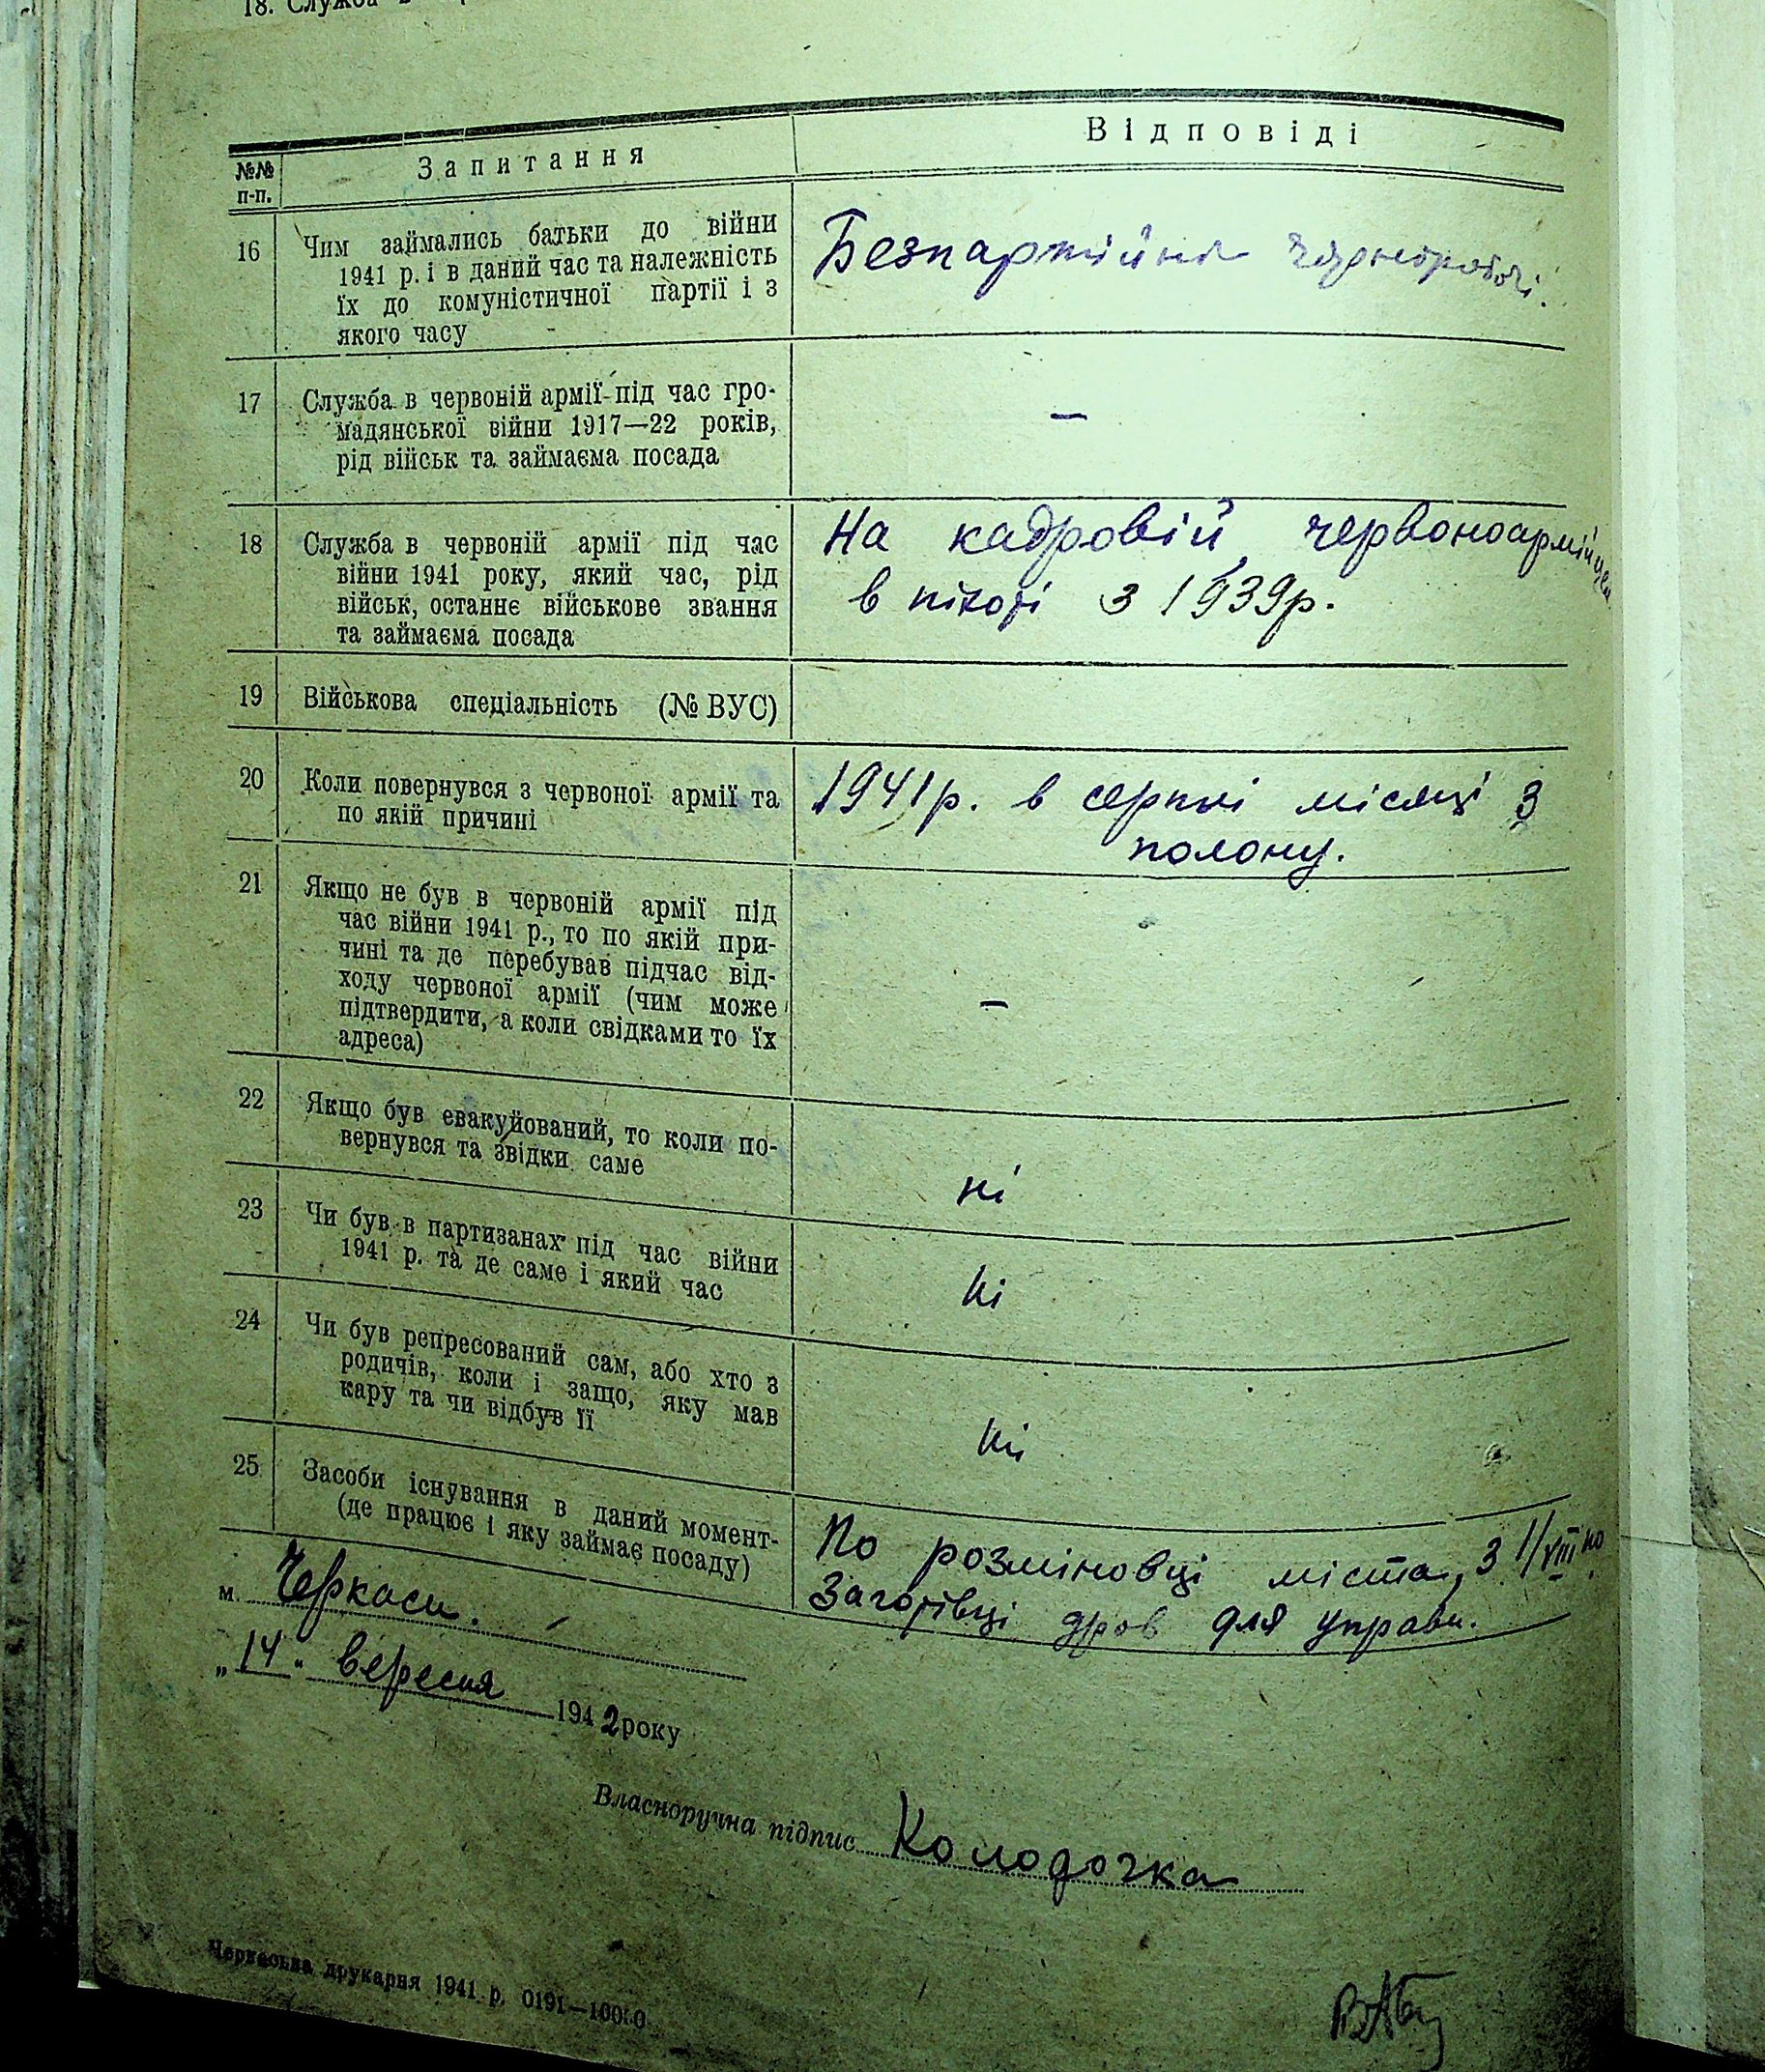 18. Служба
№№ п-п.
Запитання
Відповіді
16
Чим займались батьки до війни
1941 р. і в даний час та належність
їх до комуністичної партії і з
якого часу
Безпартійні чорноробочі.
17
Служба в червоній армії під час гро-
мадянської війни 1917—22 років,
рід військ та займаєма посада
—
18
Служба в червоній армії під час
війни 1941 року, який час, рід
військ, останнє військове звання
та займаєма посада
На кадровій, червоноармійцем
в піхоті з 1939р.
19
Військова спеціальність (№ ВУС)
20
Коли повернувся з червоної армії та
по якій причині
1941р. в серпні місяці з
полону.
21
Якщо не був в червоній армії під
час війни 1941 р., то по якій при-
чині та де перебував підчас від-
ходу червоної армії (чим може
підтвердити, а коли свідками то їх
адреса)
—
22
Якщо був евакуйований, то коли по-
вернувся та звідки саме
ні
23
Чи був в партизанах під час війни
1941 р. та де саме і який час
ні
24
Чи був репресований сам, або хто з
родичів, коли і защо, яку мав
кару та чи відбув її
ні
25
Засоби існування в даний момент-
(де працює і яку займає посаду)
По розміновці міста, з 1/VIII по
Заготівці дров для управи.
м. Черкаси.
„14" вересня 1942 року
Власноручна підпис Колодочка
Черкаська друкарня 1941 р. 0191—10000